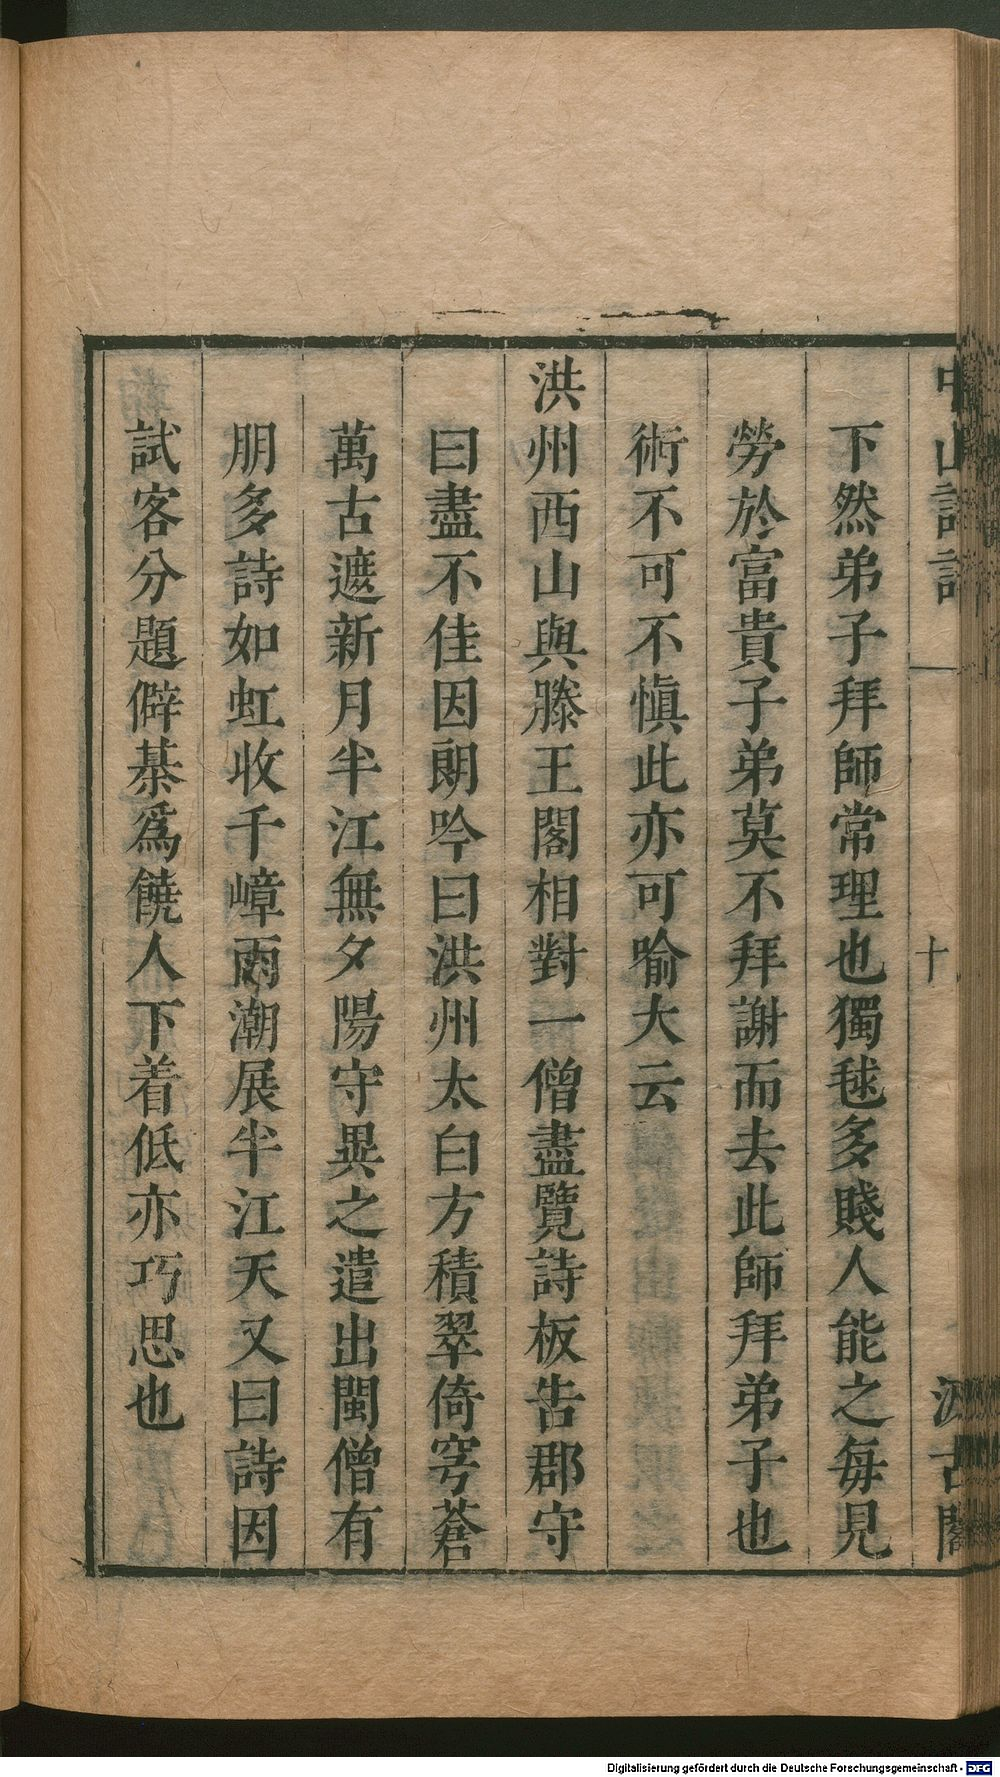 中山詩話
十
汲古閣
下然弟子拜師常理也獨毬多賤人能之每見
勞於富貴子弟莫不拜謝而去此師拜弟子也
術不可不慎此亦可喻大云
洪州西山與滕王閣相對一僧盡覽詩板告郡守
曰盡不佳因朗吟曰洪州太白方積翠倚穹蒼
萬古遮新月半江無夕陽守異之遣出閩僧有
朋多詩如虹收千嶂雨潮展半江天又曰詩因
試客分題僻棊爲饒人下着低亦巧思也
Digitalisierung gefördert durch die Deutsche Forschungsgemeinschaft - DFG